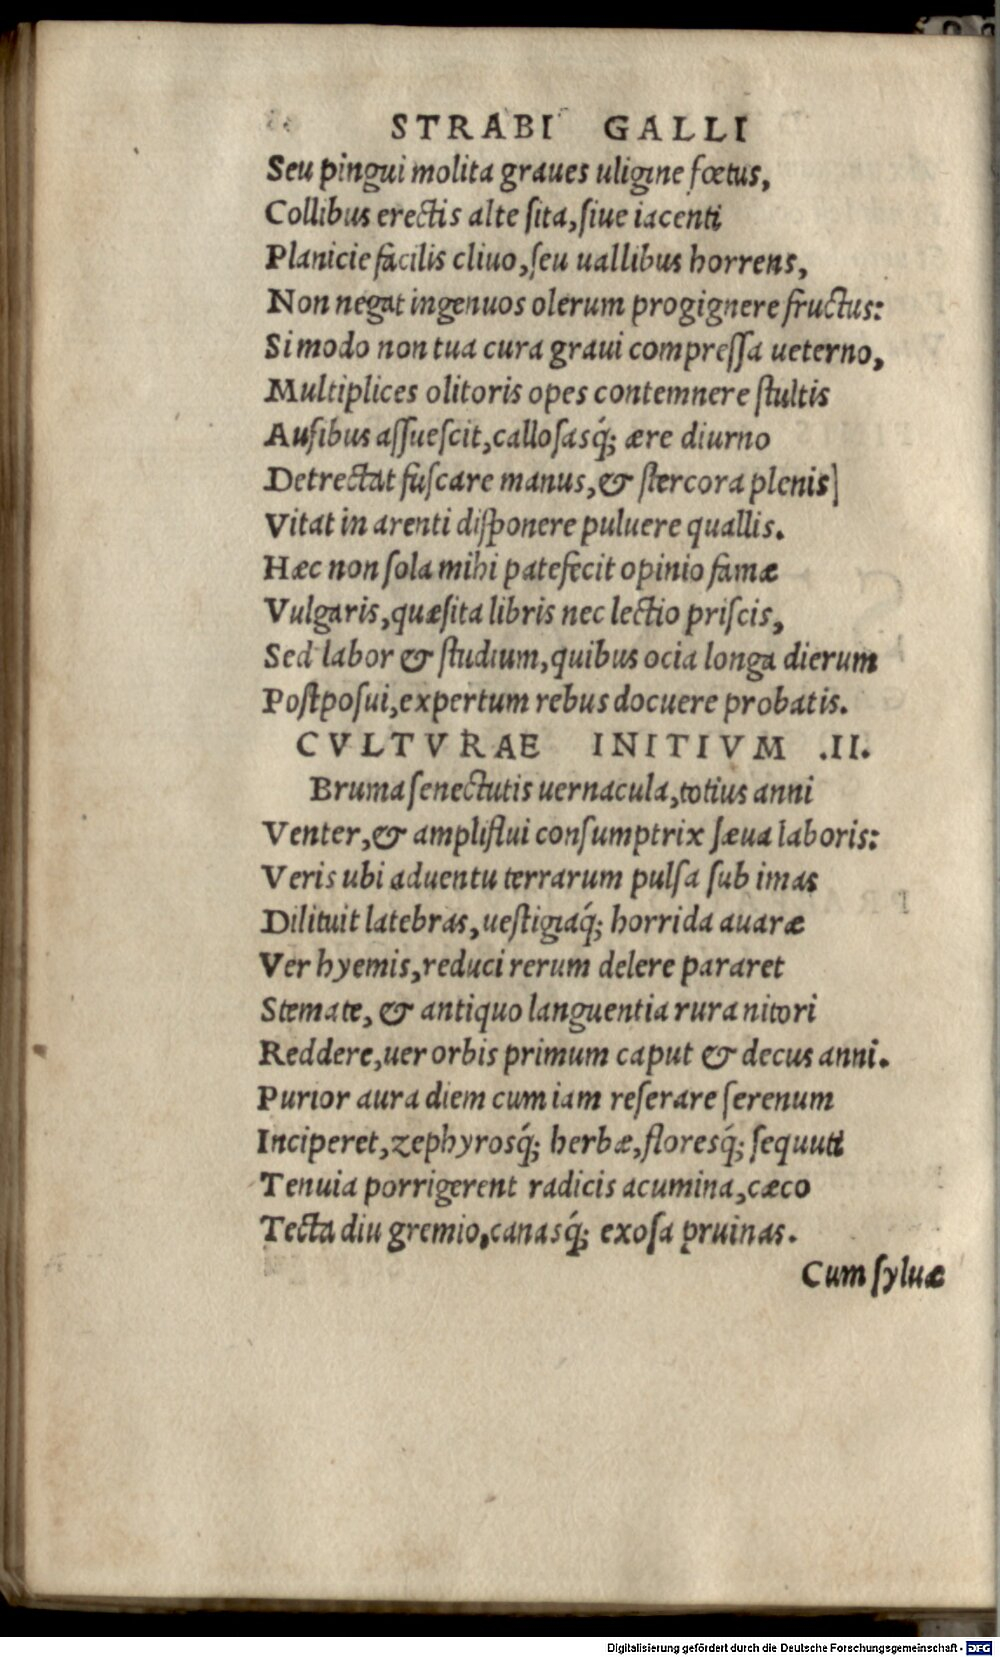 STRABI GALLI
Seu pingui molita graues uligine fœtus,
Collibus erectis alte ſita, ſiue iacenti
Planicie facilis cliuo, ſeu uallibus horrens,
Non negat ingenuos olerum progignere fructus:
Si modo non tua cura graui compreſſa ueterno,
Multiplices olitoris opes contemnere ſtultis
Auſibus aſſueſcit, calloſasq́; ære diurno
Detrectat fuſcare manus, & ſtercora plenis]
Vitat in arenti diſponere puluere quallis.
Hæc non ſola mihi patefecit opinio famæ
Vulgaris, quæſita libris nec lectio priſcis,
Sed labor & ſtudium, quibus ocia longa dierum
Poſtpoſui, expertum rebus docuere probatis.
CVLTVRAE INITIVM .II.
Bruma ſenectutis uernacula, totius anni
Venter, & ampliflui conſumptrix ſæua laboris:
Veris ubi aduentu terrarum pulſa ſub imas
Dilituit latebras, ueſtigiaq́; horrida auaræ
Ver hyemis, reduci rerum delere pararet
Stemate, & antiquo languentia rura nitori
Reddere, uer orbis primum caput & decus anni.
Purior aura diem cum iam reſerare ſerenum
Inciperet, zephyrosq́; herbæ, floresq́; ſequuti
Tenuia porrigerent radicis acumina, cæco
Tecta diu gremio, canasq́; exoſa pruinas.
Cum ſyluæ
Digitalisierung gefördert durch die Deutsche Forschungsgemeinschaft - DFG